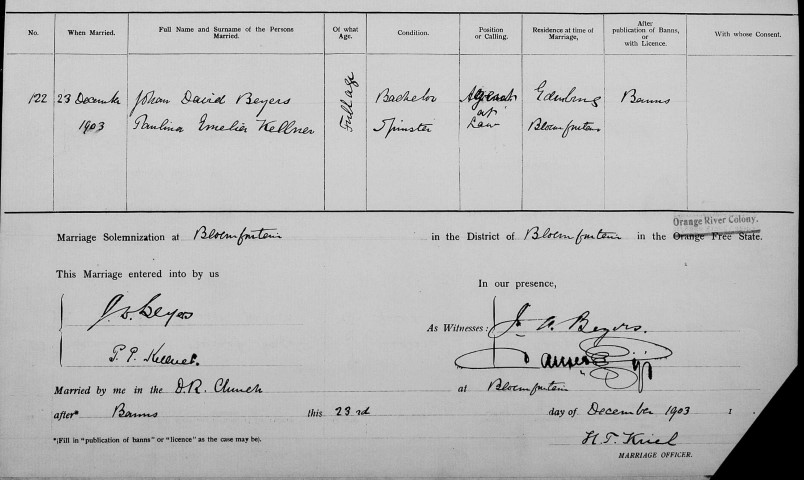 No. When Married. Full Name and Surname of the Persons Married. Of what Age. Condition. Position or Calling. Residence at time of Marriage, After publication of Banns, or with Licence. With whose Consent.
122 23 December Johan David Beyers Full age Bachelor Agent Edenburg Banns
at
1903 Paulina Emelia Kellner Spinster Law Bloemfontein
Orange River Colony.
Marriage Solemnization at Bloemfontein in the District of Bloemfontein in the Orange Free State.
This Marriage entered into by us
In our presence,
J. D. Beyers
As Witnesses: A. Beyers.
P. P. Kellner.
Married by me in the D.R. Church at Bloemfontein
after* Banns this 23rd day of December 1903 1
*(Fill in "publication of banns" or "licence" as the case may be).
H. T. Kriel
MARRIAGE OFFICER.